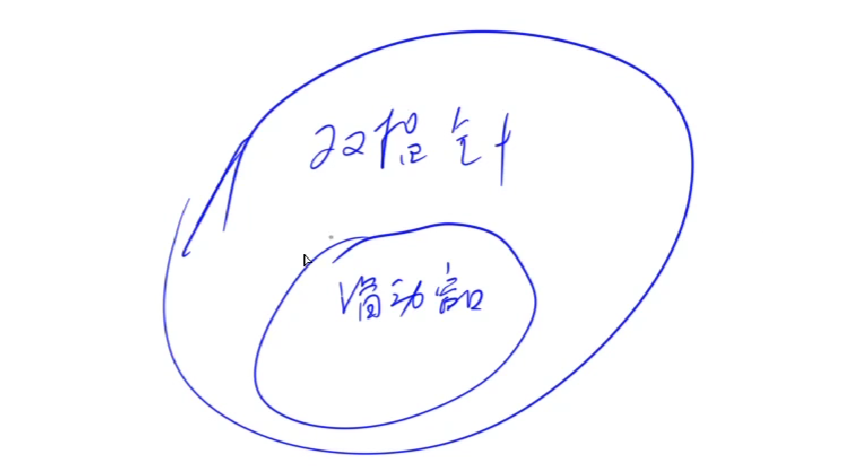 双指针
滑动窗口